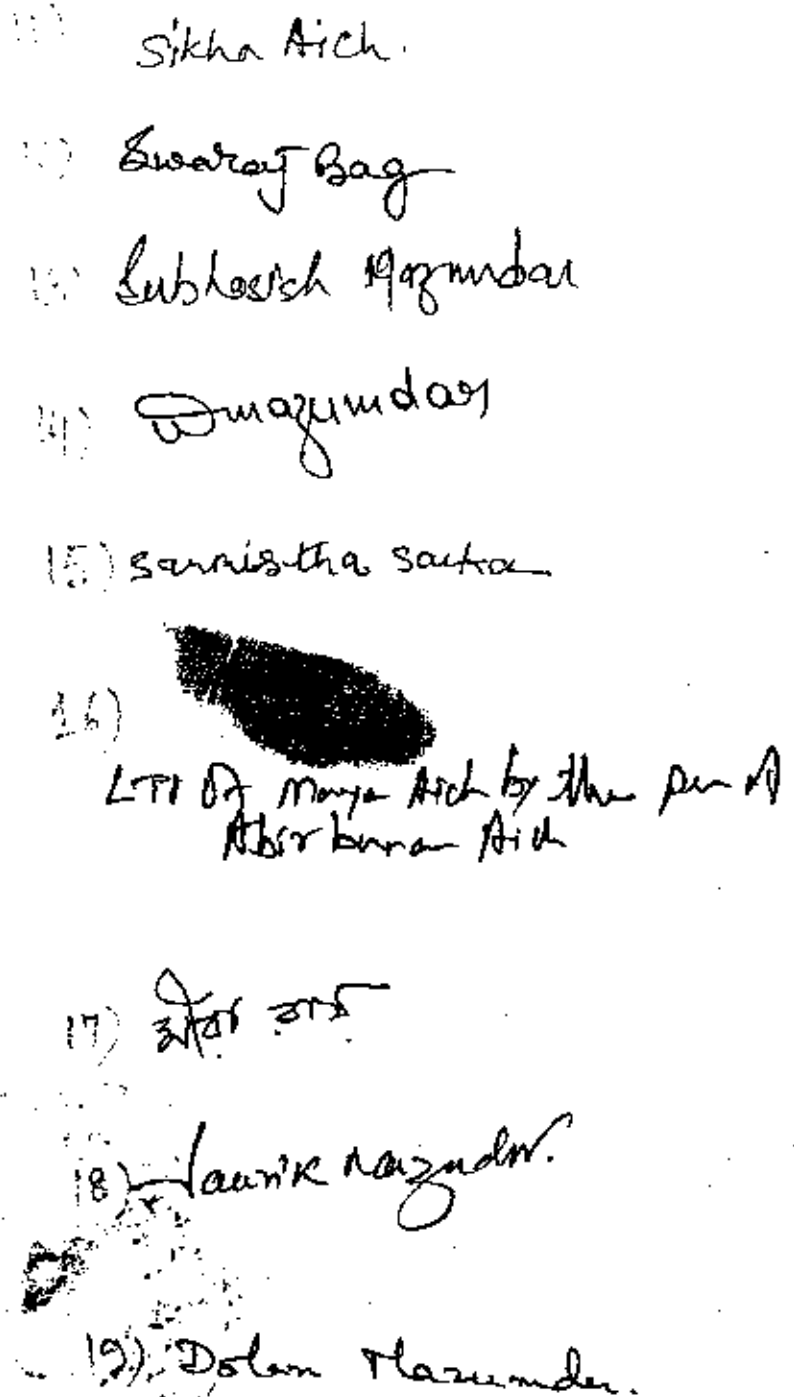 11) Sikha Aich.
12) Swaraj Bag
13) Subhasish Mazumdar
14) Mazumdar
15) Sarmistha Sarkar
16)
LTI Of Maya Aich by the pen of
Abir kumar Aich
17) মীরা
18) Mazumdar.
19) Dolan Mazumder.